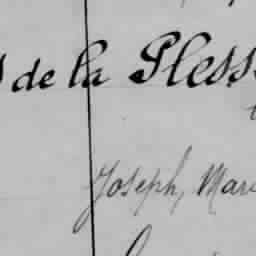 de la Pless
Joseph, Mari